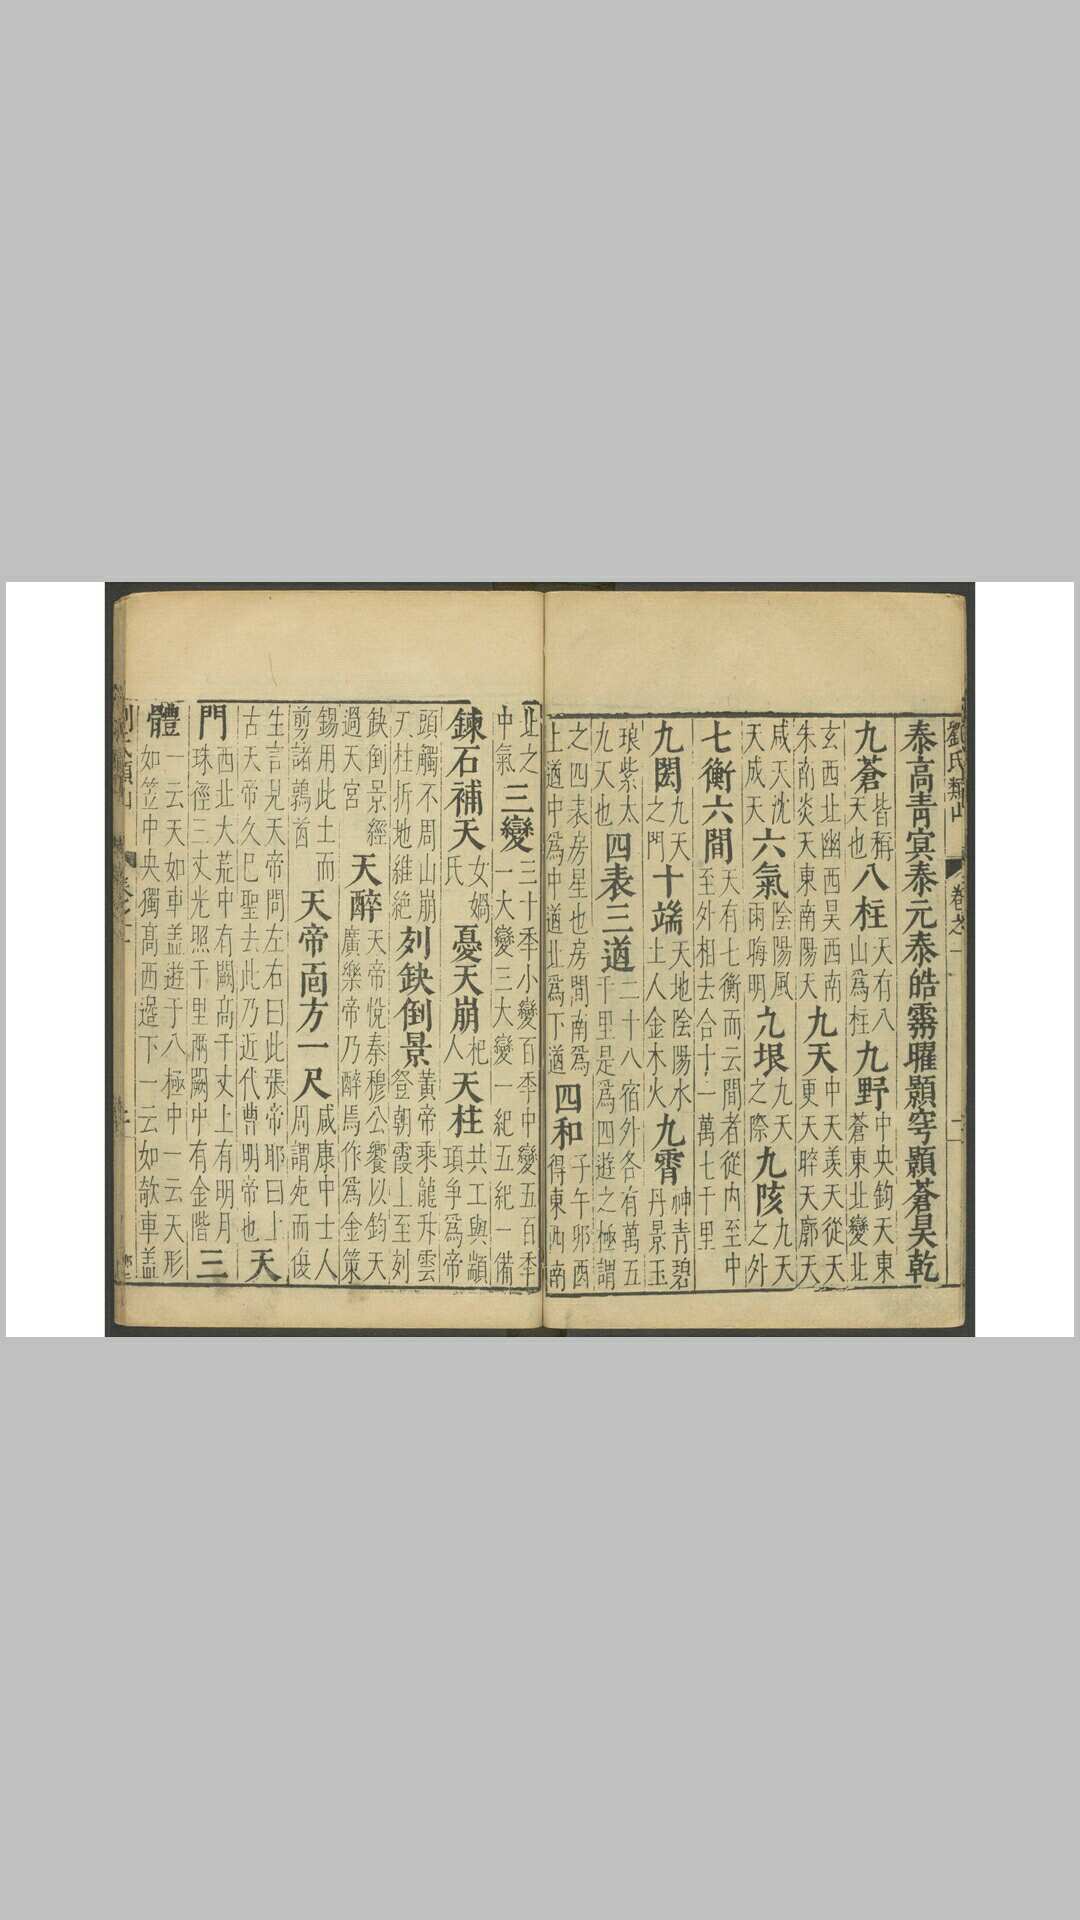 劉氏類山 卷之一 二
泰高青冥泰元泰皓霧曜顥穹顥蒼昊乾
九蒼皆稱天也八柱天有八山爲柱九野中央鈞天東蒼東北變北
玄西北幽西昊西南朱南炎天東南陽天九天中天羨天從天更天睟天廓天
咸天沈天成天六氣陰陽風雨晦明九垠九天之際九陔九天之外
七衡六間天有七衡而云間者從內至中至外相去合十一萬七千里
九閎九天之門十端天地陰陽水土人金木火九霄神青碧丹景玉
琅紫太九天也四表三道二十八宿外各有萬五千里是爲四遊之極謂
之四表房星也房間南爲上道中爲中道北爲下道四和子午卯酉得東西南
北之中氣三變三十季小變百季中變五百季一大變三大變一紀五紀一備
鍊石補天女媧氏憂天崩杞人天柱共工與顓頊爭爲帝
頭觸不周山崩天柱折地維絕列缺倒景黃帝乘龍升雲登朝霞上至列
缺倒景經過天宮天醉天帝悅秦穆公饗以鈞天廣樂帝乃醉焉作爲金策
錫用此土而剪諸鶉首天帝面方一尺咸康中士人周謂死而復
生言見天帝問左右曰此張帝耶曰上古天帝久已聖去此乃近代曹明帝也天
門西北大荒中有闕高千丈上有明月珠徑三丈光照千里兩闕中有金階三
體一云天如車蓋遊于八極中一云天形如笠中央獨高西邊下一云如欹車蓋
劉氏類山 卷之一 二